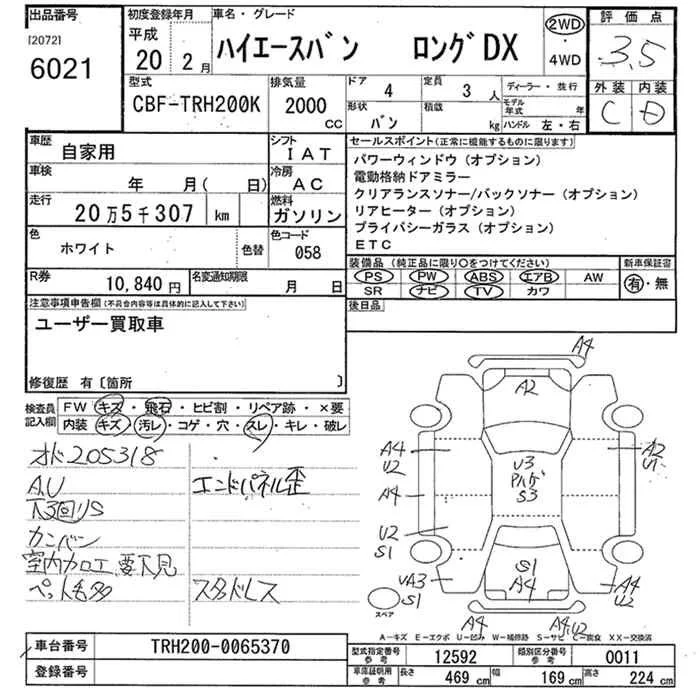 出品番号
[2072]
6021
初度登録年月
平成
20 2月
車名・グレード
ハイエースバン ロングDX
2WD
・
4WD
評価点
3.5
型式
CBF-TRH200K
排気量
2000
CC
ドア
4
定員
3 人
ディーラー・並行
モデル年式 年
形状
バン
積載
kg
ハンドル 左・右
外装 内装
C D
車歴
自家用
シフト
IAT
車検
年 月( 日)
冷房
AC
走行
20万5千307 km
燃料
ガソリン
色
ホワイト
色替
色コード
058
R券
10,840 円
名変通知期限
月 日
セールスポイント(正常に機能するものに限ります)
パワーウィンドウ(オプション)
電動格納ドアミラー
クリアランスソナー/バックソナー(オプション)
リアヒーター(オプション)
プライバシーガラス(オプション)
ETC
装備品(純正品に限り○をつけてください)
新車保証書
PS PW ABS エアB AW
SR ナビ TV カワ
有・無
後日品
注意事項申告欄(不具合内容等は具体的に記入して下さい)
ユーザー買取車
修復歴 有〔箇所 〕
検査員
記入欄
FW キズ・飛石・ヒビ割・リペア跡・×要
内装 キズ・汚レ・コゲ・穴・スレ・キレ・破レ
オド205318
AU
下3回リS
カンバン
室内カロエ、要下見
ペット毛多
エンドパネル歪
スタドレス
A4
A2
A4
U2
A4
U2
S1
U3
Pハゲ
S3
A2
U1
UA3
S1
S1
A4
A4
U2
A4
A4,U2
スペア
A－キズ E－エクボ U－凹み W－補修跡 S－サビ C－腐食 XX－交換済
車台番号
TRH200-0065370
登録番号
型式指定番号
参考
12592
類別区分番号
参考
0011
車庫証明用
参考
長さ 469 cm
幅 169 cm
高さ 224 cm